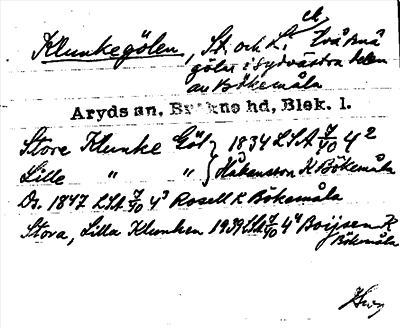 Klunkegölen, St. och L. Två små
gölar i sydvästra delen
av Bökemåla
Aryds sn, Bräkne hd, Blek. l.
Stora Klunke Göl } 1834 LSA 7/90 4²
Lille " " } Håkansson K Bökemåla
Do. 1847 LSA 7/90 4³ Rosell K Bökemåla
Stora, Lilla Klunken 1939 LSA 7/90 4⁴ Boijsen K
Bökemåla